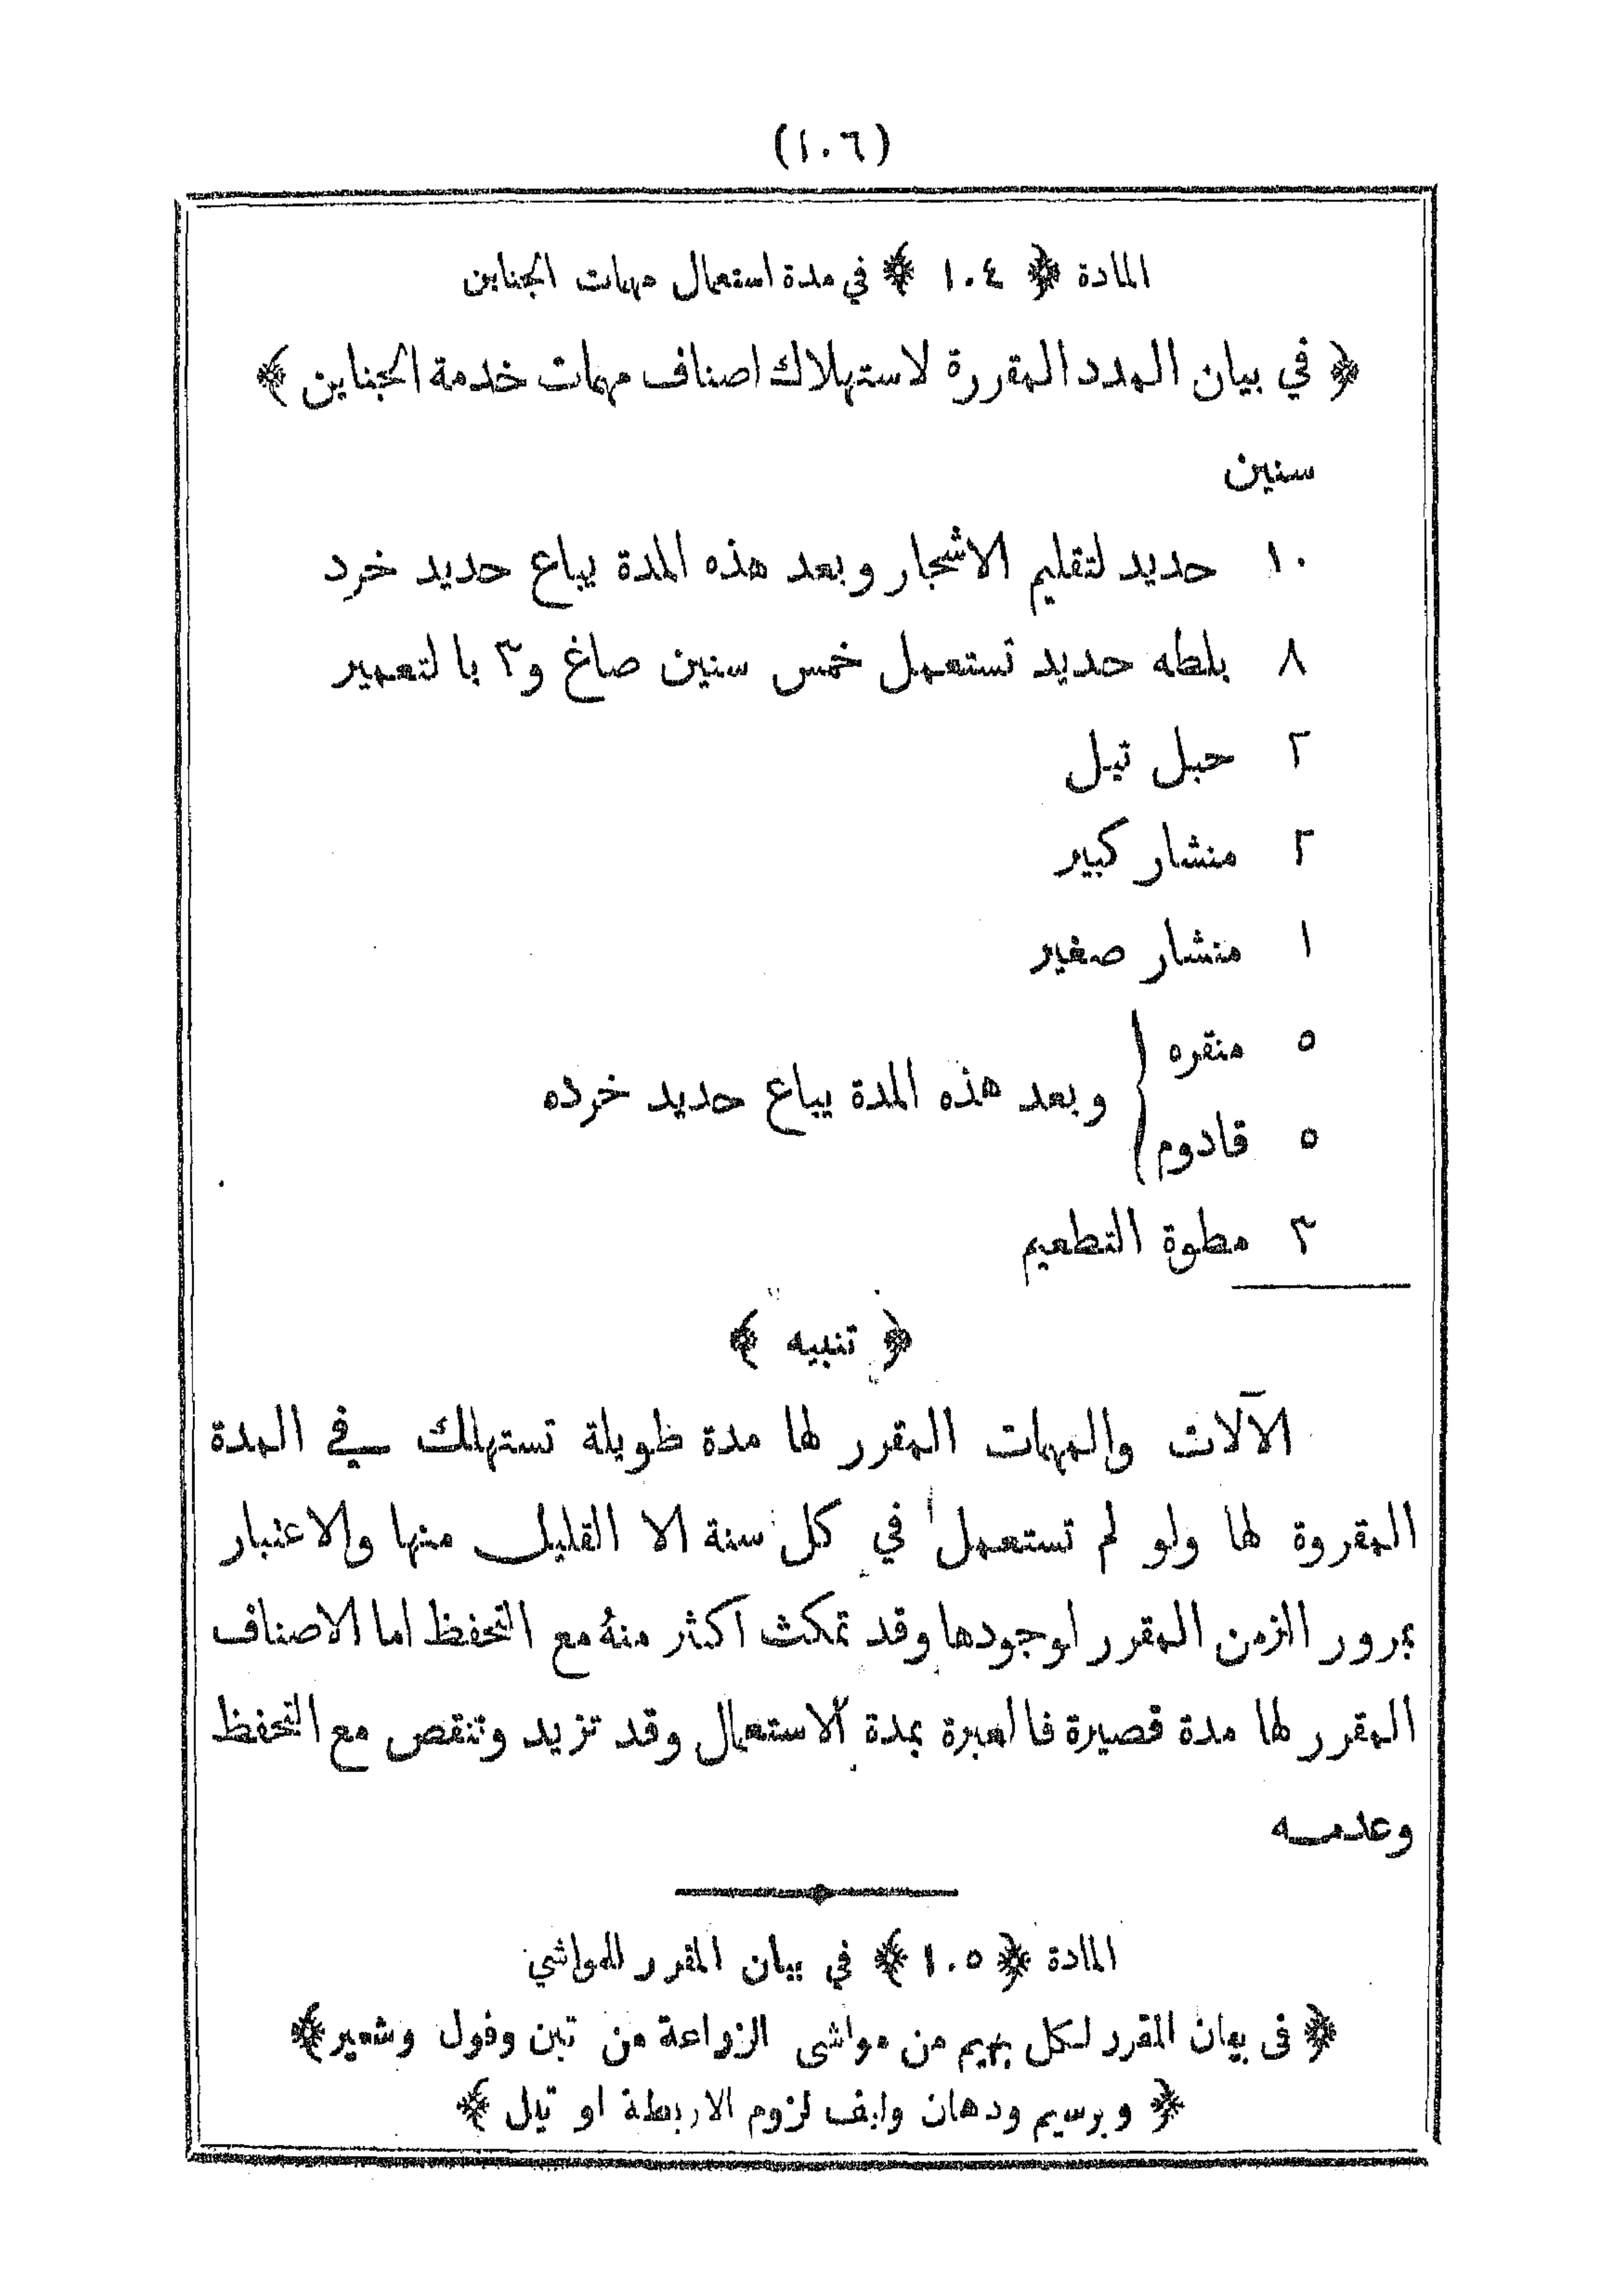 (١٠٦)
المادة ﴿ ١٠٤ ﴾ في مدة استعمال مهمات الجناين
﴿ في بيان المدد المقررة لاستهلاك اصناف مهمات خدمة الجناين ﴾
سنين
١٠ حديد لتقليم الاشجار وبعد هذه المدة يباع حديد خرد
٨ بلطه حديد تستعمل خمس سنين صاغ و٣ بالتعمير
٢ حبل تيل
٢ منشار كبير
١ منشار صغير
٥ منقره
وبعد هذه المدة يباع حديد خرده
٥ قادوم
٣ مطوة التطعيم
﴿ تنبيه ﴾
الآلات والمهمات المقرر لها مدة طويلة تستهلك في المدة
المقروة لها ولو لم تستعمل في كل سنة الا القليل منها والاعتبار
بمرور الزمن المقرر لوجودها وقد تمكث اكثر منهُ مع التحفظ اما الاصناف
المقرر لها مدة قصيرة فالعبرة بمدة الاستعمال وقد تزيد وتنقص مع التحفظ
وعدمه
المادة ﴿ ١٠٥ ﴾ في بيان المقرر للمواشي
﴿ فى بيان المقرر لكل بهيم من مواشى الزراعة من تبن وفول وشعير ﴾
﴿ وبرسيم ودهان وليف لزوم الاربطة او تيل ﴾